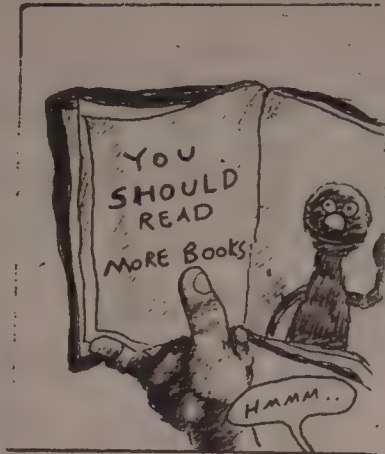 YOU
SHOULD
READ
MORE BOOKS
HMMM..